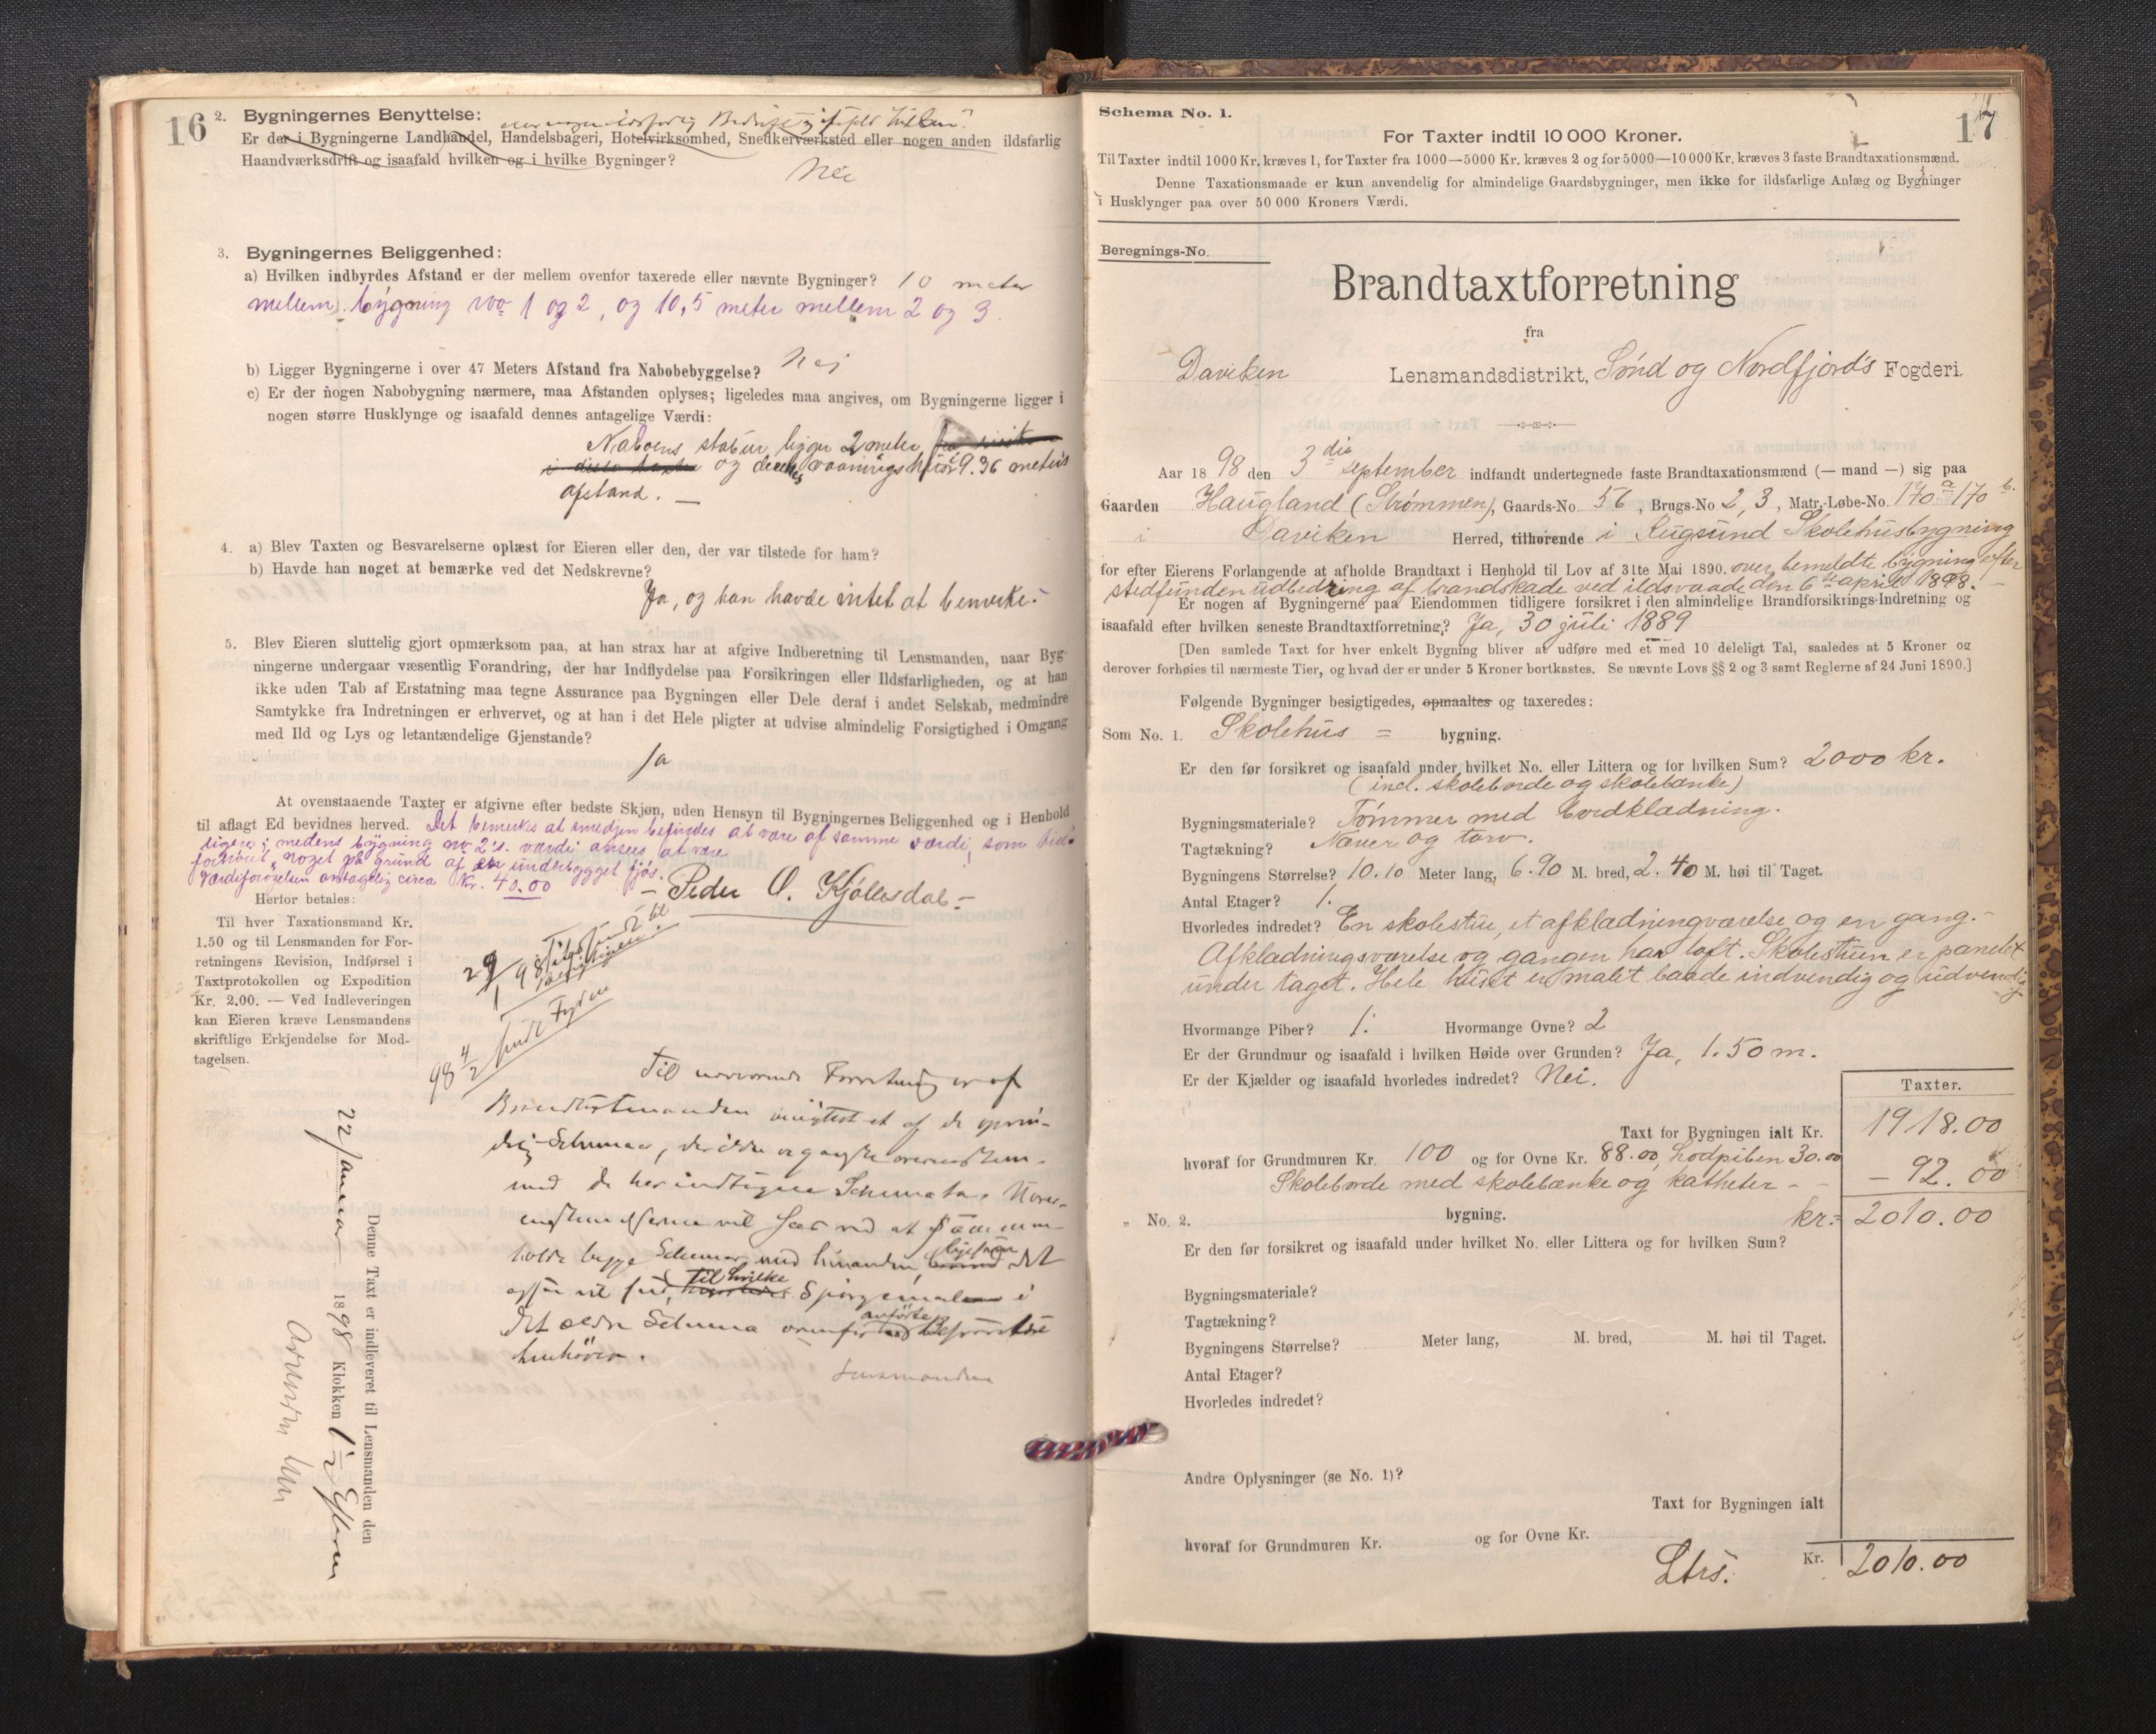 16
2. Bygningernes Benyttelse:
Er der i Bygningerne Landhandel, Handelsbageri, Hotelvirksomhed, Snedkerværksted eller nogen anden ildsfarlig
Haandværksdrift og isaafald hvilken og i hvilke Bygninger?
Nei
3. Bygningernes Beliggenhed:
a) Hvilken indbyrdes Afstand er der mellem ovenfor taxerede eller nævnte Bygninger? 10 meter
mellem bygning No 1 og 2, og 10,5 meter mellem 2 og 3.
b) Ligger Bygningerne i over 47 Meters Afstand fra Nabobebyggelse? Nei
c) Er der nogen Nabobygning nærmere, maa Afstanden oplyses; ligeledes maa angives, om Bygningerne ligger i
nogen større Husklynge og isaafald dennes antagelige Værdi:
Naboens stabur ligger 2 meter
og vaaningshus 9.36 meters
afstand. —
4. a) Blev Taxten og Besvarelserne oplæst for Eieren eller den, der var tilstede for ham?
b) Havde han noget at bemærke ved det Nedskrevne?
Ja, og han havde intet at bemerke.
5. Blev Eieren sluttelig gjort opmærksom paa, at han strax har at afgive Indberetning til Lensmanden, naar Byg-
ningerne undergaar væsentlig Forandring, der har Indflydelse paa Forsikringen eller Ildsfarligheden, og at han
ikke uden Tab af Erstatning maa tegne Assurance paa Bygningen eller Dele deraf i andet Selskab, medmindre
Samtykke fra Indretningen er erhvervet, og at han i det Hele pligter at udvise almindelig Forsigtighed i Omgang
med Ild og Lys og letantændelige Gjenstande?
Ja
At ovenstaaende Taxter er afgivne efter bedste Skjøn, uden Hensyn til Bygningernes Beliggenhed og i Henhold
til aflagt Ed bevidnes herved. Det bemerkes at smedjen befindes at være af samme værdi, som tid-
ligere; medens bygning no 2's værdi ansees at være
forhøiet noget på grund af en underbygget fjøs.
Værdiforøgelsen antagelig circa Kr. 40.00
— Peder O. Kjøllesdal —
Herfor betales:
Til hver Taxationsmand Kr.
1.50 og til Lensmanden for For-
retningens Revision, Indførsel i
Taxtprotokollen og Expedition
Kr. 2.00. — Ved Indleveringen
kan Eieren kræve Lensmandens
skriftlige Erkjendelse for Mod-
tagelsen.
29/1 98
98 4/2
Til nærværende Forretning er af
Brandtaxtmanden
med de her indtagne Schemata.
holde begge Schemaer med hinanden, det
Til hvilke Spørgsmaal i
det ældre Schema
anførte
henhører.
Lensmanden
Denne Taxt er indleveret til Lensmanden den
22 Januar 1898 Klokken 1 1/2 Efterm
17
Schema No. 1.
For Taxter indtil 10 000 Kroner.
Til Taxter indtil 1000 Kr. kræves 1, for Taxter fra 1000—5000 Kr. kræves 2 og for 5000—10 000 Kr. kræves 3 faste Brandtaxationsmænd.
Denne Taxationsmaade er kun anvendelig for almindelige Gaardsbygninger, men ikke for ildsfarlige Anlæg og Bygninger
i Husklynger paa over 50 000 Kroners Værdi.
Beregnings-No.
Brandtaxtforretning
fra
Daviken Lensmandsdistrikt, Sønd og Nordfjord's Fogderi.
Aar 1898 den 3die september indfandt undertegnede faste Brandtaxationsmænd (— mand —) sig paa
Gaarden Haugland (Strømmen), Gaards-No. 56, Brugs-No. 2, 3, Matr.-Løbe-No. 170a 170b.
i Daviken Herred, tilhørende i Rugsund Skolehusbygning
for efter Eierens Forlangende at afholde Brandtaxt i Henhold til Lov af 31te Mai 1890. over bemeldte bygning efter
stedfunden udbedring af brandskade ved ildsvaade den 6te april 1898. —
Er nogen af Bygningerne paa Eiendommen tidligere forsikret i den almindelige Brandforsikrings-Indretning og
isaafald efter hvilken seneste Brandtaxtforretning? Ja, 30 juli 1889
[Den samlede Taxt for hver enkelt Bygning bliver at udføre med et med 10 deleligt Tal, saaledes at 5 Kroner og
derover forhøies til nærmeste Tier, og hvad der er under 5 Kroner bortkastes. Se nævnte Lovs §§ 2 og 3 samt Reglerne af 24 Juni 1890.]
Følgende Bygninger besigtigedes, opmaaltes og taxeredes:
Som No. 1. Skolehus = bygning.
Er den før forsikret og isaafald under hvilket No. eller Littera og for hvilken Sum? 2000 kr.
(incl. skoleborde og skolebænke)
Bygningsmateriale? Tømmer med bordklædning.
Tagtækning? Næver og torv.
Bygningens Størrelse? 10.10 Meter lang, 6.90 M. bred, 2.40 M. høi til Taget.
Antal Etager? 1.
Hvorledes indredet? En skolestue, et afklædningværelse og en gang. —
Afklædningsværelse og gangen har loft. Skolestuen er panelet
under taget. Hele huset er malet baade indvendig og udvendig
Hvormange Piber? 1. Hvormange Ovne? 2
Er der Grundmur og isaafald i hvilken Høide over Grunden? Ja, 1.50 m.
Er der Kjælder og isaafald hvorledes indredet? Nei.
Taxter.
Taxt for Bygningen ialt Kr. 1918.00
hvoraf for Grundmuren Kr. 100 og for Ovne Kr. 88.00, Lodpiben 30.00
Skoleborde med skolebænke og katheter — — 92.00
„ No. 2. bygning. kr. = 2010.00
Er den før forsikret og isaafald under hvilket No. eller Littera og for hvilken Sum?
Bygningsmateriale?
Tagtækning?
Bygningens Størrelse? Meter lang, M. bred, M. høi til Taget.
Antal Etager?
Hvorledes indredet?
Andre Oplysninger (se No. 1)?
Taxt for Bygningen ialt
hvoraf for Grundmuren Kr. og for Ovne Kr.
Ltrs. Kr. 2010.00